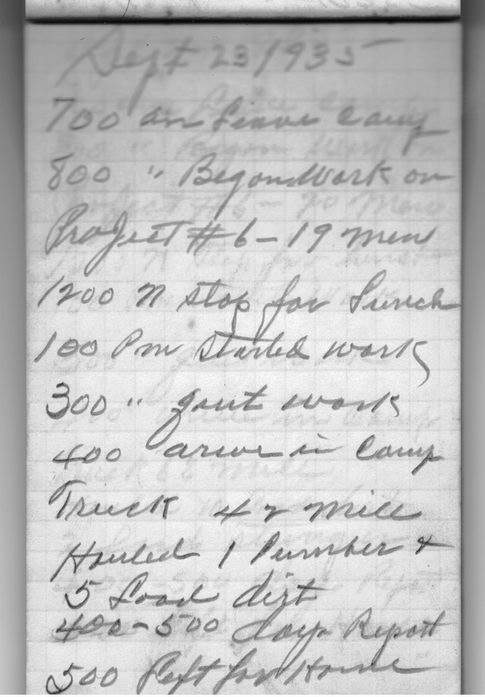 Sept 23 1935
700 am Leave Camp
800 " Began Work on
Project #6 - 19 men
1200 N stop for Lunch
100 Pm started work
300 " quit work
400 arive in Camp
Truck 42 mile
Hauled 1 Lumber +
5 Load dirt
400-500 days Report
500 Left for Home